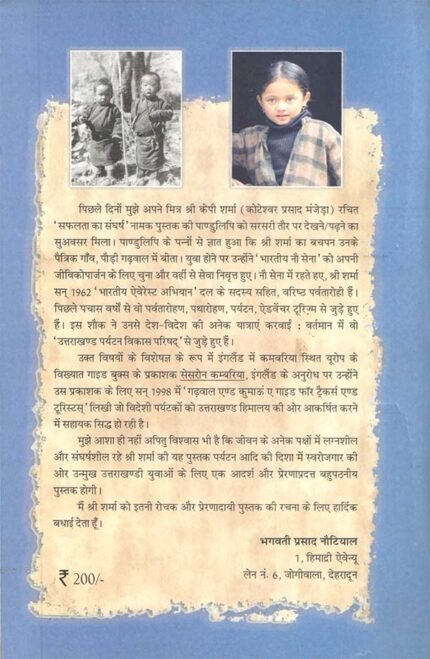 पिछले दिनों मुझे अपने मित्र श्री केपी शर्मा (कोटेश्वर प्रसाद मंजेड़ा) रचित
'सफलता का संघर्ष' नामक पुस्तक की पाण्डुलिपि को सरसरी तौर पर देखने/पढ़ने का
सुअवसर मिला। पाण्डुलिपि के पन्नों से ज्ञात हुआ कि श्री शर्मा का बचपन उनके
पैत्रिक गाँव, पौड़ी गढ़वाल में बीता। युवा होने पर उन्होंने 'भारतीय नौ सेना' को अपनी
जीविकोपार्जन के लिए चुना और वहीं से सेवा निवृत्त हुए। नौ सेना में रहते हुए, श्री शर्मा
सन् 1962 'भारतीय ऐवेरेस्ट अभियान' दल के सदस्य सहित, वरिष्ठ पर्वतारोही हैं।
पिछले पचास वर्षों से वो पर्वतारोहण, पथारोहण, पर्यटन, ऐडवेंचर टूरिज्म से जुड़े हुए
हैं। इस शौक ने उनसे देश-विदेश की अनेक यात्राएं करवाईं : वर्तमान में वो
'उत्तराखण्ड पर्यटन विकास परिषद्' से जुड़े हुए हैं।
उक्त विषयों के विशेषज्ञ के रूप में इंगलैंड में कमबरिया स्थित यूरोप के
विख्यात गाइड बुक्स के प्रकाशक सेसरोन कम्बरिया, इंगलैंड के अनुरोध पर उन्होंने
उस प्रकाशक के लिए सन् 1998 में 'गढ़वाल एण्ड कुमाऊं ए गाइड फॉर ट्रैकर्स एण्ड
टूरिस्टस्' लिखी जो विदेशी पर्यटकों को उत्तराखण्ड हिमालय की ओर आकर्षित करने
में सहायक सिद्ध हो रही है।
मुझे आशा ही नहीं अपितु विश्वास भी है कि जीवन के अनेक पक्षों में लग्नशील
और संघर्षशील रहे श्री शर्मा की यह पुस्तक पर्यटन आदि की दिशा में स्वरोजगार की
ओर उन्मुख उत्तराखण्डी युवाओं के लिए एक आदर्श और प्रेरणाप्रदत्त बहुपठनीय
पुस्तक होगी।
मैं श्री शर्मा को इतनी रोचक और प्रेरणादायी पुस्तक की रचना के लिए हार्दिक
बधाई देता हूँ।
भगवती प्रसाद नौटियाल
1, हिमाद्री ऐवेन्यू
लेन नं. 6, जोगीवाला, देहरादून
₹ 200/-